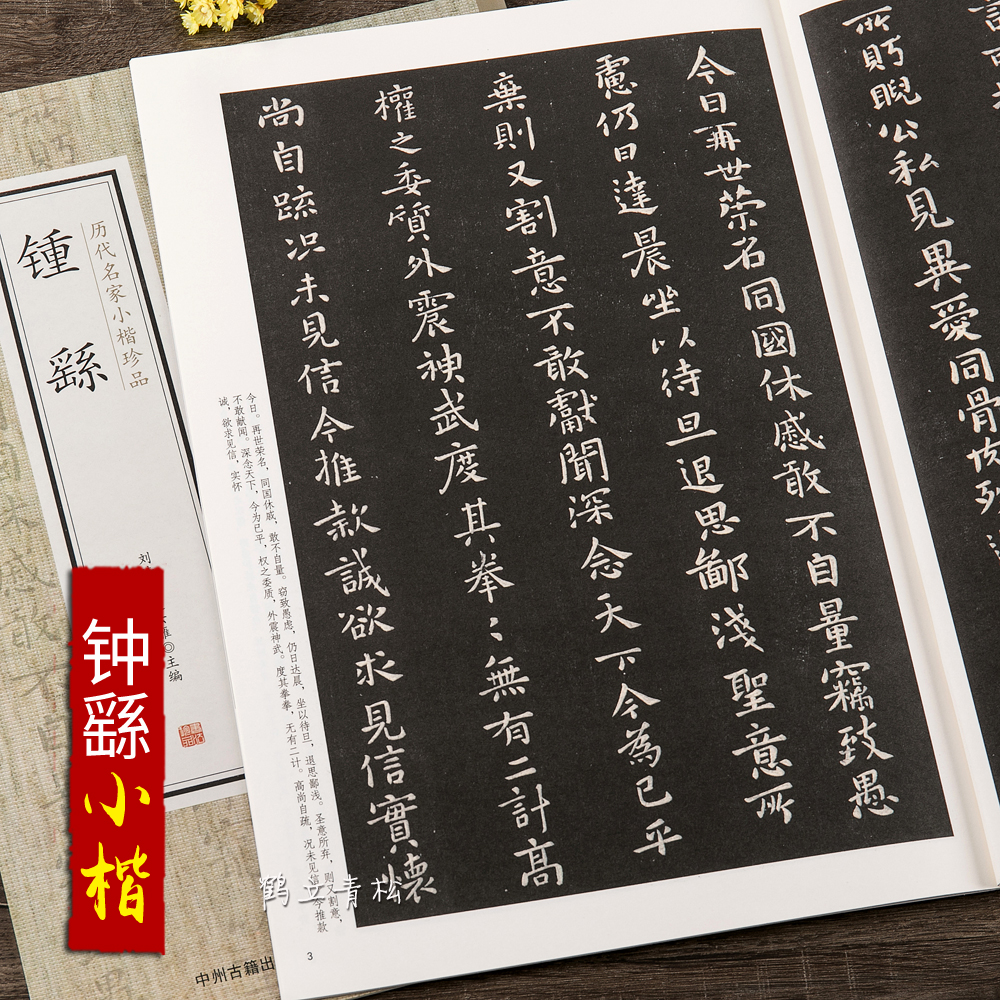 所眄睨公私見異愛同骨
今日再世榮名同國休慼敢不自量竊致愚
慮仍日達晨坐以待旦退思鄙淺聖意所
棄則又割意不敢獻聞深念天下今為已平
權之委質外震神武度其拳〻無有二計高
尚自疏況未見信今推款誠欲求見信實懷
今日。再世荣名,同国休戚,敢不自量。窃致愚虑,仍日达晨,坐以待旦,退思鄙浅。圣意所弃,则又割意,
不敢献闻。深念天下,今为已平,权之委质,外震神武。度其拳拳,无有二计。高尚自疏,况未见信,今推款
诚,欲求见信,实怀
3
历代名家小楷珍品
锺繇
刘
主编
中州古籍出
钟繇小楷
鹤立青松